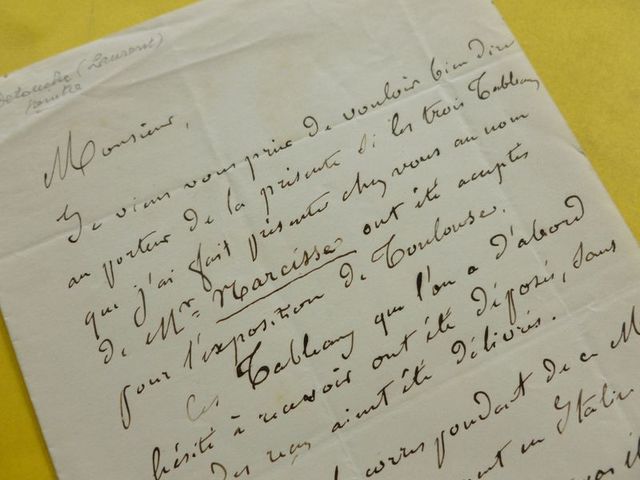 Detouche (Laurent)
peintre
Monsieur,
Je viens vous prier de vouloir bien dire
au porteur de la présente si les trois Tableaux
que j'ai fait présenter chez vous au nom
de Mr Narcisse ont été acceptés
pour l'exposition de Toulouse.
Ces Tableaux que l'on a d'abord
hésité à recevoir ont été déposés, sans
des reçus aient été délivrés.
correspondant de ce M
en Italie